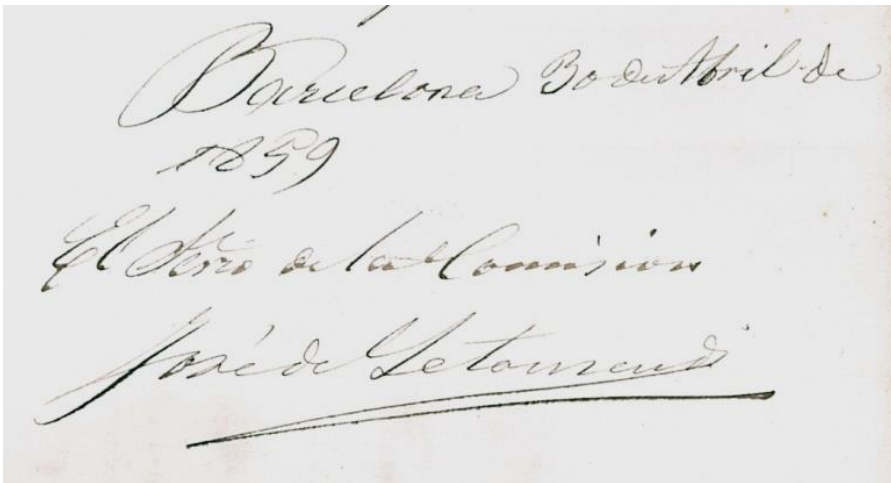 Barcelona 30 de Abril de
1859
El Srio de la Comision
José de Letamendi